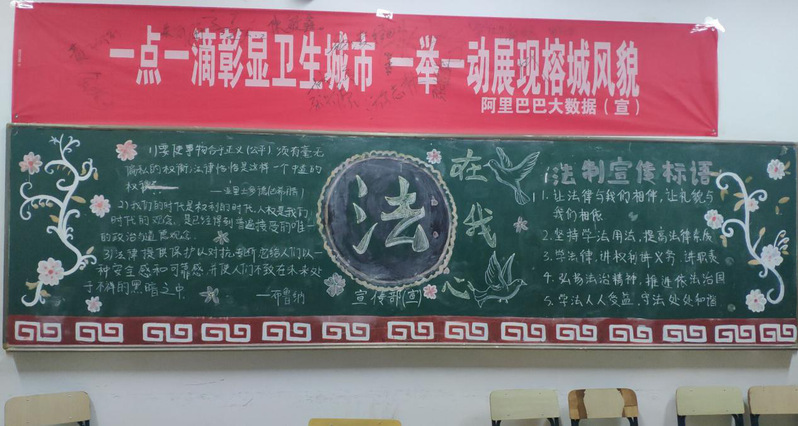 一点一滴彰显卫生城市 一举一动展现榕城风貌
阿里巴巴大数据（宣）
1)要使事物合于正义(公平) 须有毫无
偏私的权衡,法律恰恰是这样一个中道的
权衡
——亚里士多德
2)我们的时代是权利的时代,人权是我们
时代的观念,是已经得到普遍接受的唯一
的政治与道德观念
3)法律提供保护以对抗专断,它给人们以一
种安全感和可靠感,并使人们不致在未来处
于不祥的黑暗之中.
——布鲁纳
法
在我心
宣传部(宣)
法制宣传标语
1. 让法律与我们相伴,让礼貌与
我们相依
2. 坚持学法用法,提高法律素质
3. 学法律,讲权利讲义务,讲职责
4. 弘扬法治精神,推进依法治国
5. 学法人人受益,守法处处和谐